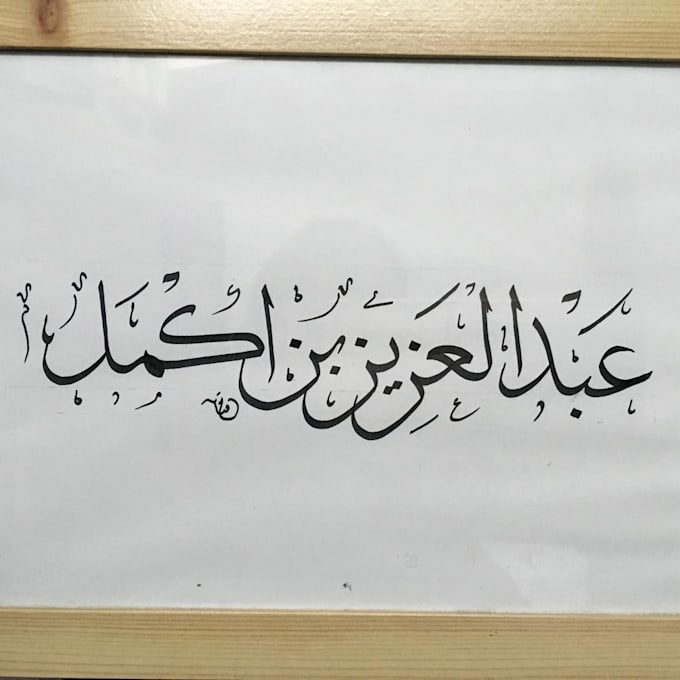 عبدالعزيز بن اكمل